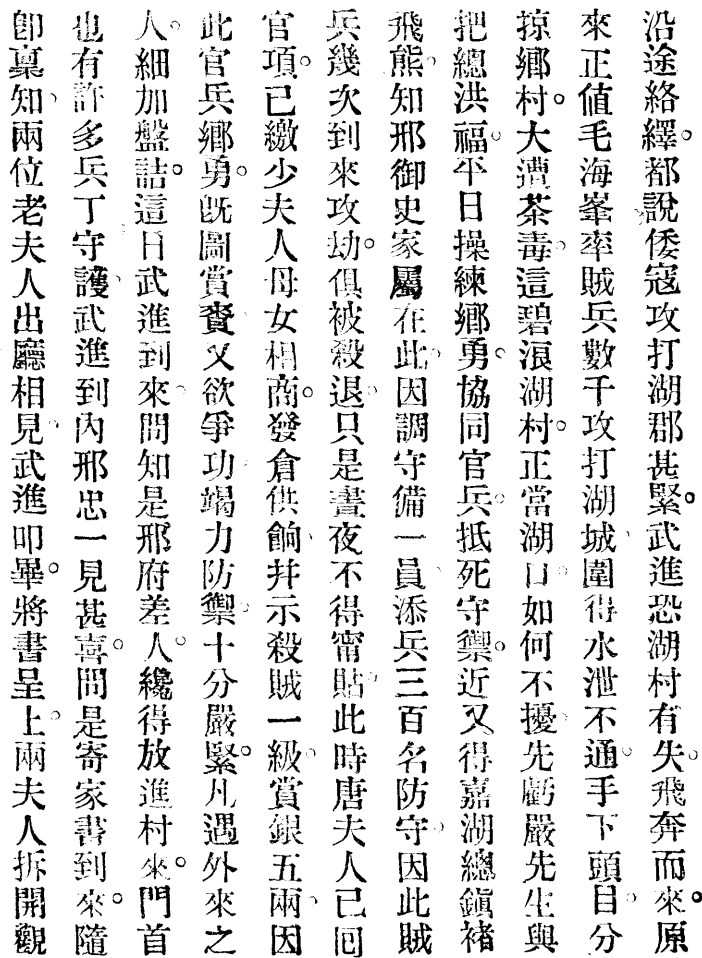 沿途絡繹。都說倭寇攻打湖郡甚緊。武進恐湖村有失。飛奔而來。原
來正值毛海峯率賊兵數千攻打湖城、圍得水泄不通。手下頭目。分
掠鄉村。大遭荼毒。這碧浪湖村。正當湖口。如何不擾、先虧嚴先生與
把總洪福。平日操練鄉勇。協同官兵。抵死守禦。近又得嘉湖總鎮褚
飛熊。知邢御史家屬在此。因調守備一員、添兵三百名防守。因此賊
兵幾次到來攻劫。俱被殺退。只是晝夜不得甯貼。此時唐夫人已回
官項。已繳少夫人母女相商。發倉供餉、幷示殺賊一級。賞銀五兩、因
此官兵鄉勇。既圖賞賚又欲爭功竭力防禦。十分嚴緊。凡遇外來之
人。細加盤詰。這日武進到來。問知是邢府差人。纔得放進村來。門首
也有許多兵丁守護、武進到內邢忠一見甚喜。問是寄家書到來。隨
卽稟知、兩位老夫人出廳相見、武進叩畢。將書呈上。兩夫人拆開觀